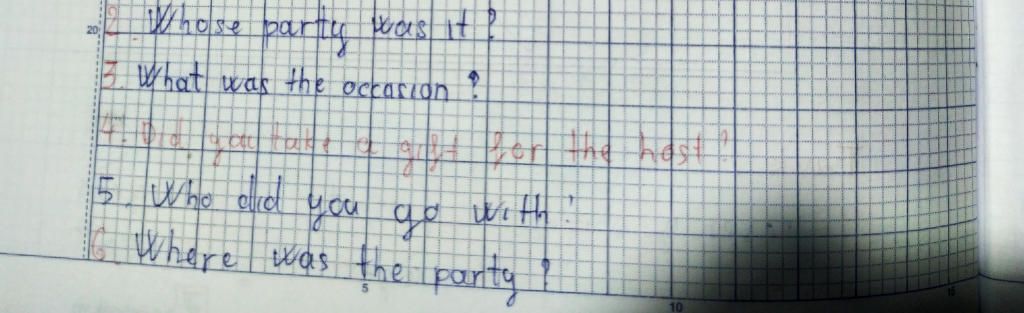 20 2. Whose party was it?
3. What was the occasion?
4. Did you take a gift for the host?
5. Who did you go with?
6. Where was the party?
5 10 15